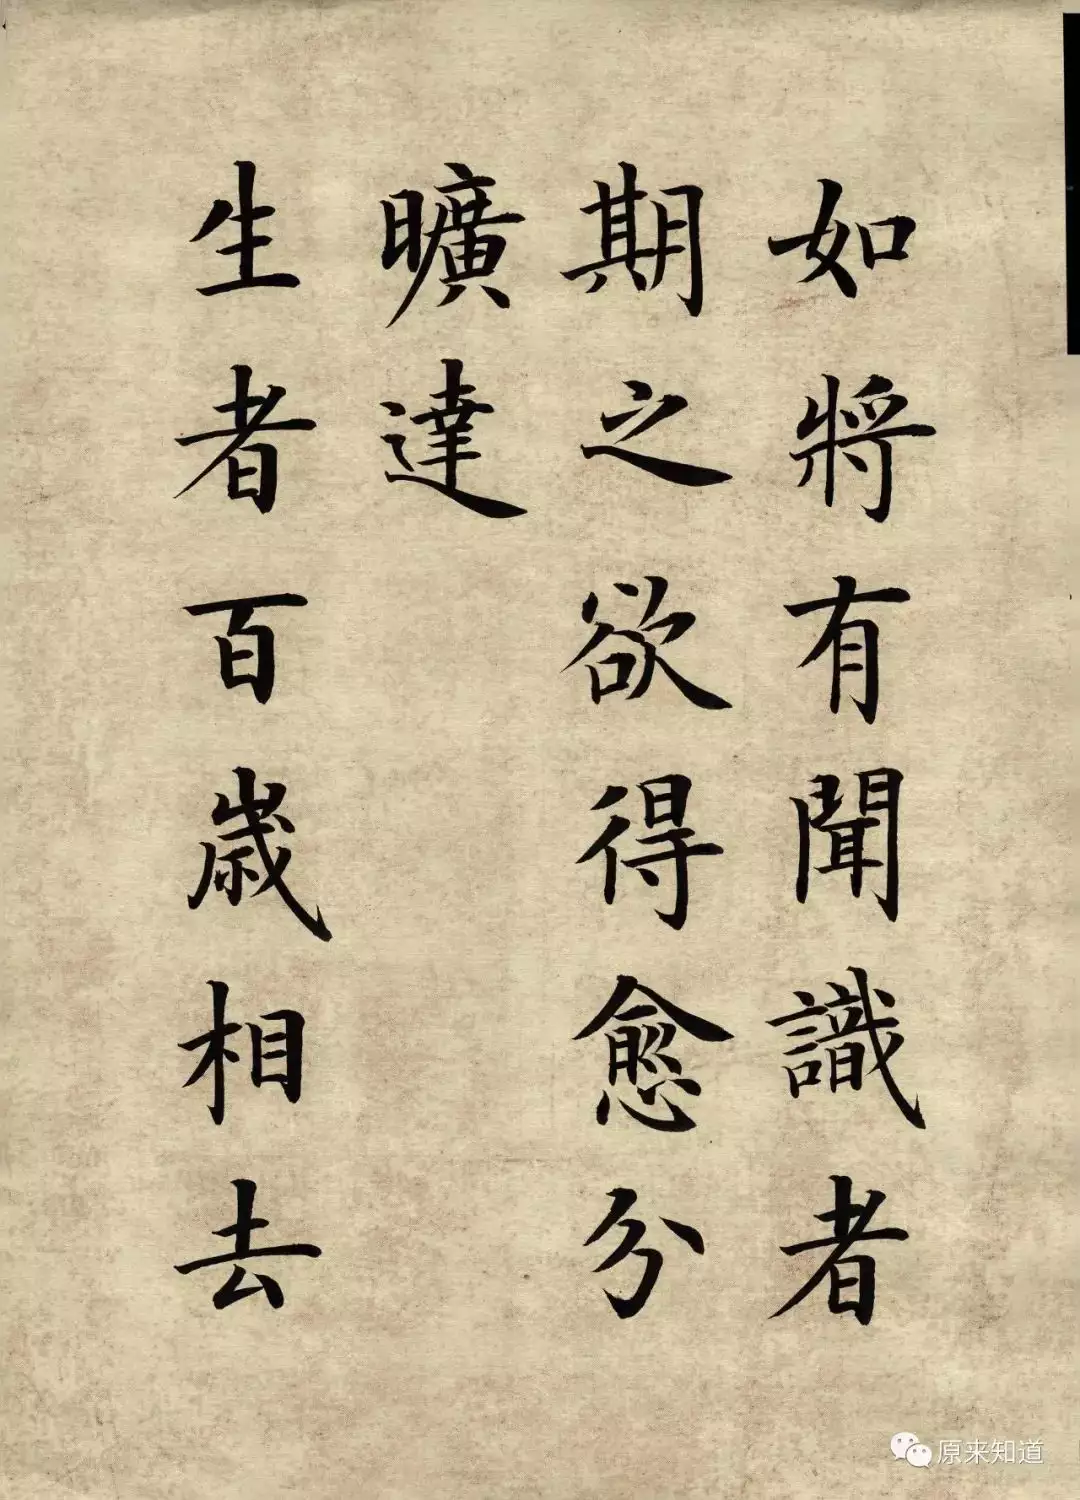 如將有聞識者
期之欲得愈分
曠達
生者百歲相去
原来知道